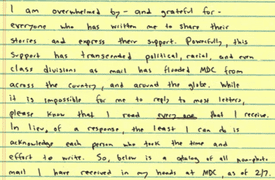 I am overwhelmed by – and grateful for –
everyone who has written me to share their
stories and express their support. Powerfully, this
support has transcended political, racial, and even
class divisions as mail has flooded MDC from
across the country, and around the globe. While
it is impossible for me to reply to most letters,
please know that I read every one that I receive.
In lieu, of a response, the least I can do is
acknowledge each person who took the time and
effort to write. So, below is a catalog of all non-photo
mail I have received in my hands at MDC as of 2/7.